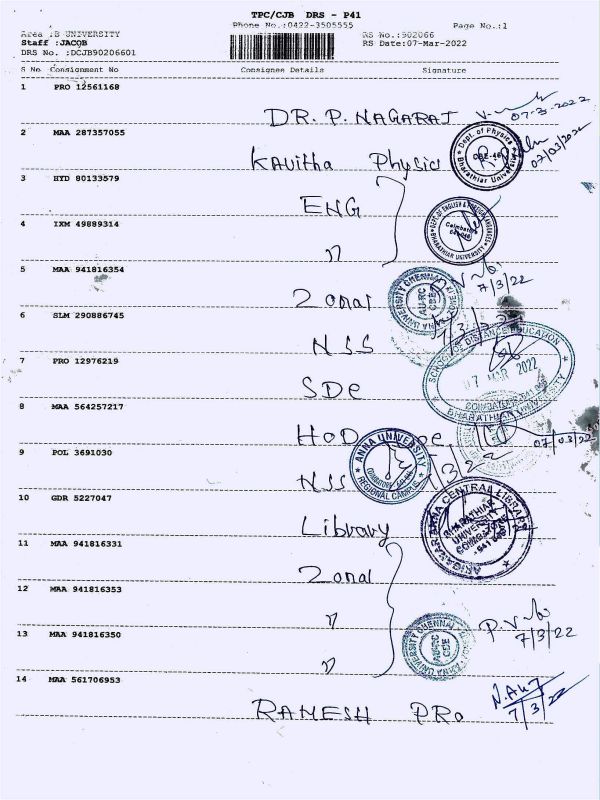 TPC/CJB DRS - P41
Phone No.:0422-3505555 Page No.:1
Area :B UNIVERSITY RS No.:902066
Staff :JACOB RS Date:07-Mar-2022
DRS No. :DCJB90206601
S No Consignment No Consignee Details Signature
1 PRO 12561168
DR. P. NAGARAJ 07-3-2022
2 MAA 287357055
Kavitha Physics Dept. of Physics Bharathiar University CBE-46 07/03/2022
3 HYD 80133579
ENG
4 IXM 49889314 DEPT. OF ENGLISH & FOREIGN LANGUAGES Coimbatore 641 046 BHARATHIAR UNIVERSITY
"
5 MAA 941816354
Zonal ANNA UNIVERSITY CHENNAI AU-RC CBE 7/3/22
6 SLM 290886745
NSS 7/3/22
7 PRO 12976219
SDE SCHOOL OF DISTANCE EDUCATION 07 MAR 2022 BHARATHIAR UNIVERSITY
8 MAA 564257217
HOD 07/03/22
9 POL 3691030
NSS ANNA UNIVERSITY REGIONAL CAMPUS 3/22
10 GDR 5227047
Library ARIGNAR ANNA CENTRAL LIBRARY BHARATHIAR UNIVERSITY COIMBATORE 641 046
11 MAA 941816331
Zonal
12 MAA 941816353
"
13 MAA 941816350 ANNA UNIVERSITY CHENNAI AU-RC CBE 7/3/22
"
14 MAA 561706953
RAMESH PRO 7/3/22